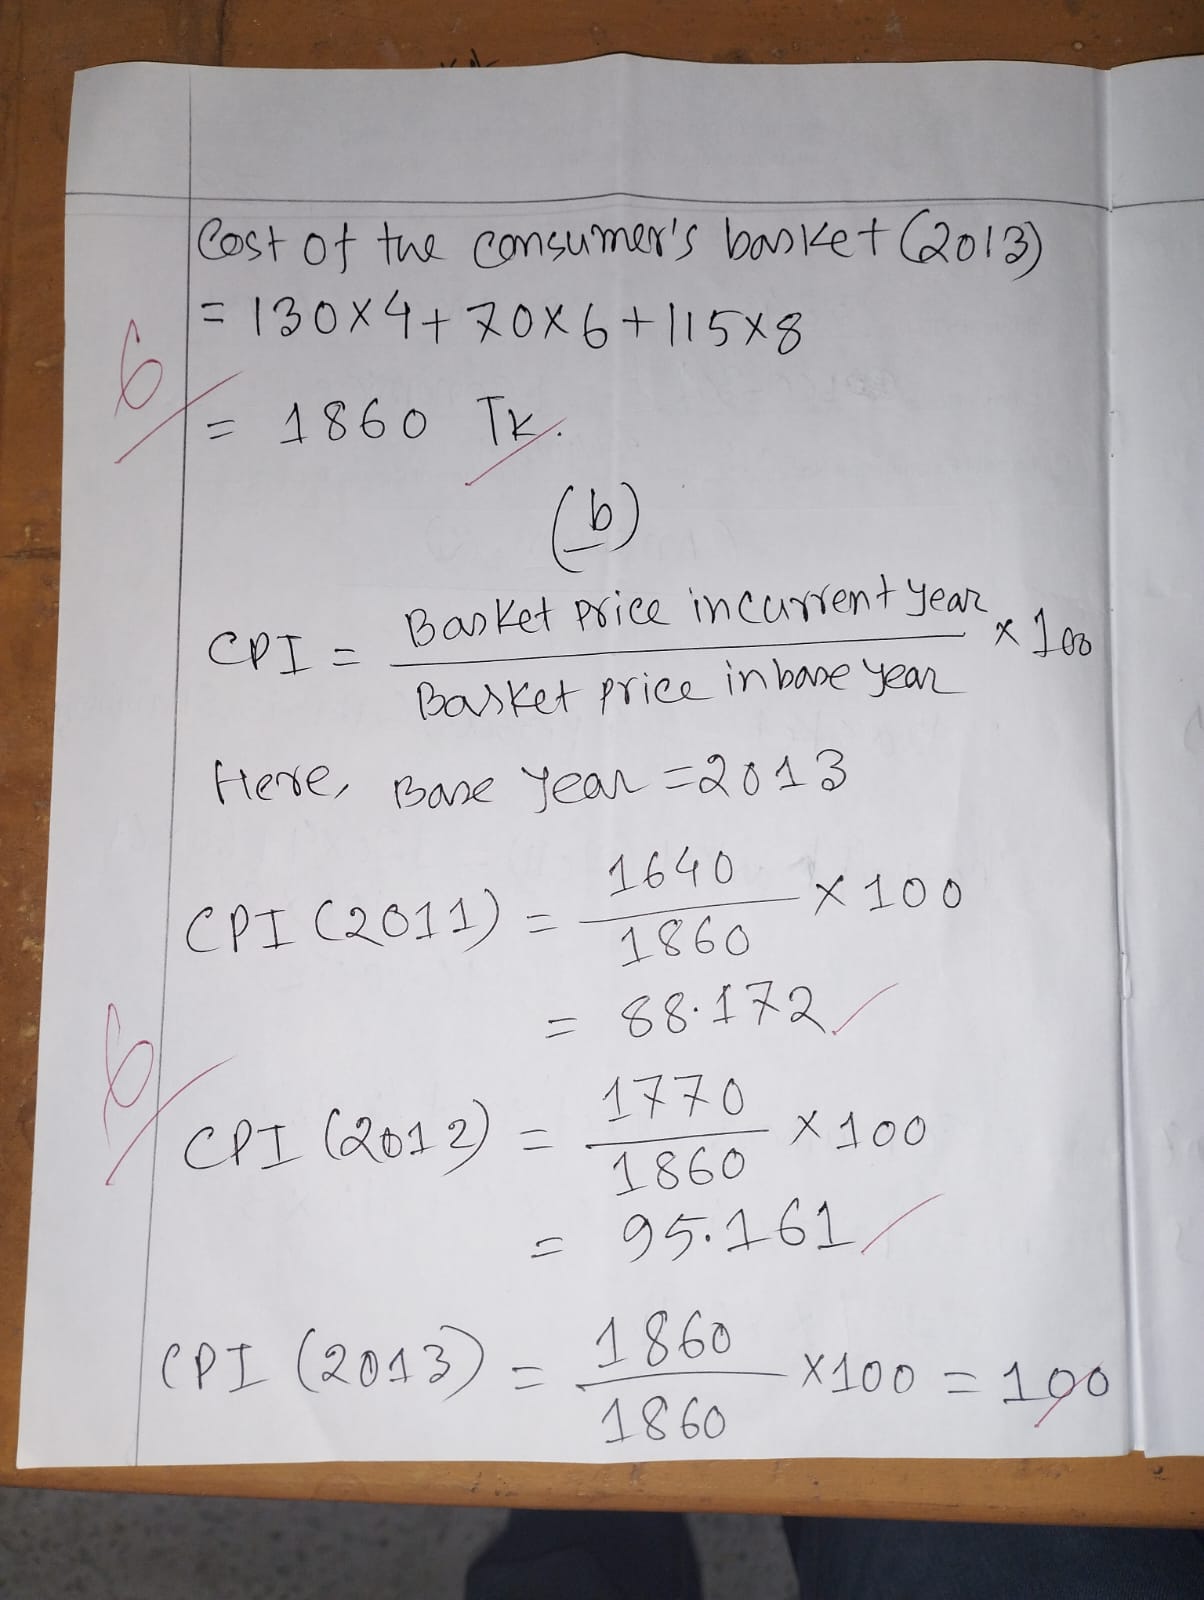 Cost of the consumer's basket (2013)
= 130×4+70×6+115×8
6
= 1860 Tk.
(b)
CPI = Basket price in current year / Basket price in base year × 100
Here, Base year = 2013
CPI (2011) = 1640 / 1860 × 100
= 88.172
6
CPI (2012) = 1770 / 1860 × 100
= 95.161
CPI (2013) = 1860 / 1860 ×100 = 100